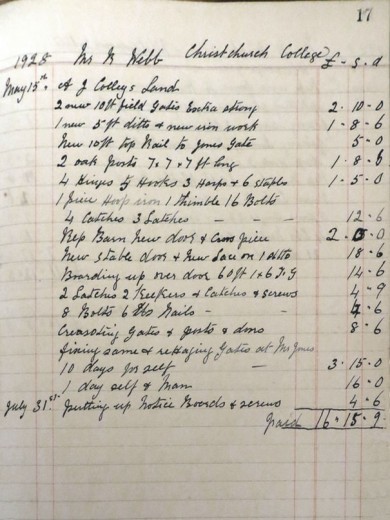 17
1928 Mr W Webb Christchurch College £ - s - d
May 15th A J Colleys Land
2 new 10ft field Gates Extra strong 2 - 10 - 0
1 new 5ft ditto & new iron work 1 - 8 - 6
New 10ft top Rail to Jones Gate 5 - 0
2 oak Posts 7 x 7 x 7 ft long 1 - 8 - 6
4 Hinges & Hooks 3 Hasps & 6 staples 1 - 5 - 0
1 Piece Hoop iron 1 Thimble 16 Bolts
4 Catches 3 Latches - - - 12 - 6
Rep Barn New door & Cross piece 2 - 0 - 0
New stable door & New on 1 ditto 18 - 6
Boarding up over door 60 ft 1 x 6 T & G 14 - 6
2 Latches 2 Keepers & Catches & screws 4 - 9
8 Bolts 6 lbs Nails - - 4 - 6
Creasoting Gates & posts & doors 8 - 6
fixing same & rehanging Gates at Mr Jones
10 days for self - 3 - 15 - 0
1 day self & Man 16 - 0
July 31st Putting up Notice Boards & screws 4 - 6
Paid 16 - 15 - 9